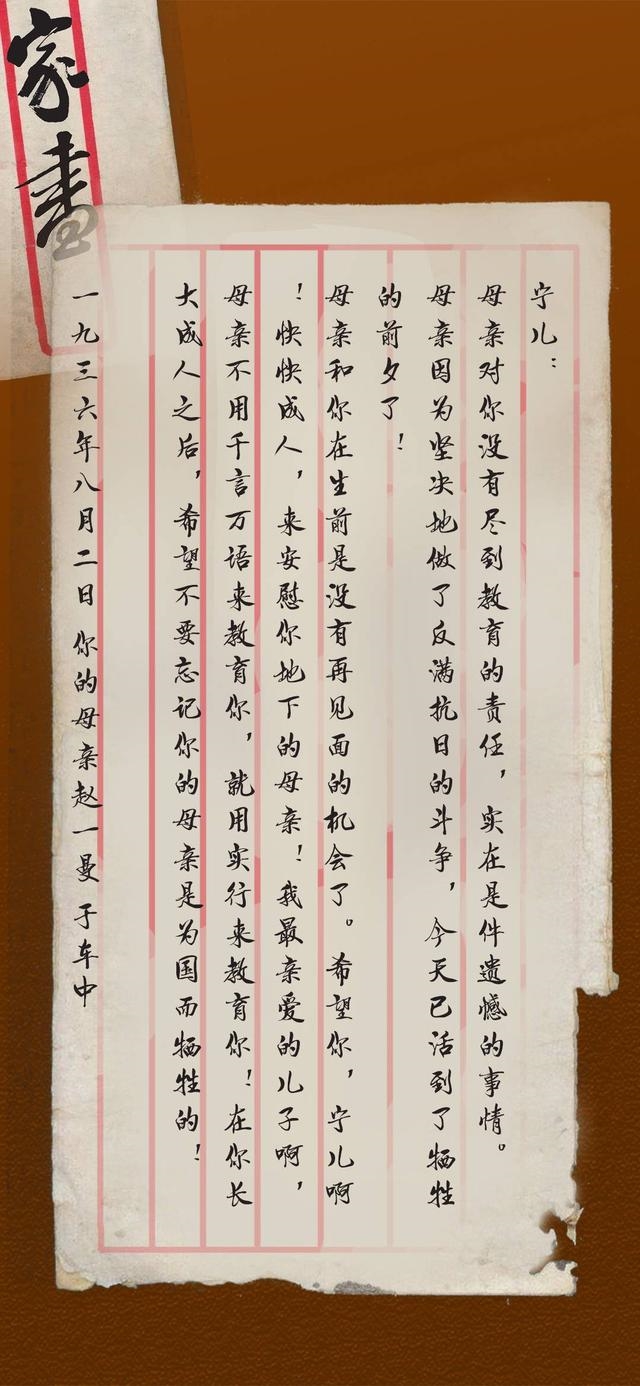 家書
宁儿：
母亲对你没有尽到教育的责任，实在是件遗憾的事情。
母亲因为坚决地做了反满抗日的斗争，今天已活到了牺牲
的前夕了！
母亲和你在生前是没有再见面的机会了。希望你，宁儿啊
！快快成人，来安慰你地下的母亲！我最亲爱的儿子啊，
母亲不用千言万语来教育你，就用实行来教育你！在你长
大成人之后，希望不要忘记你的母亲是为国而牺牲的！
一九三六年八月二日 你的母亲赵一曼 于车中